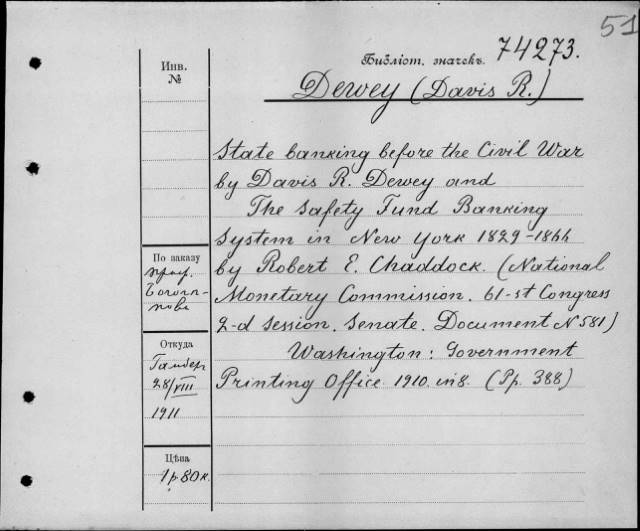 51
Библіот. значекъ. 74273.
Dewey (Davis R.)
Инв.
№
State banking before the Civil War
by Davis R. Dewey and
The Safety Fund Banking
System in New York 1829-1866
by Robert E. Chaddock. (National
Monetary Commission. 61-st Congress
2-d Session. Senate. Document N 581)
Washington: Government
Printing Office 1910. in 8. (Pp. 388)
По заказу
проф.
Боголѣ-
пова
Откуда
28/VIII
1911
Цѣна
1р80к.